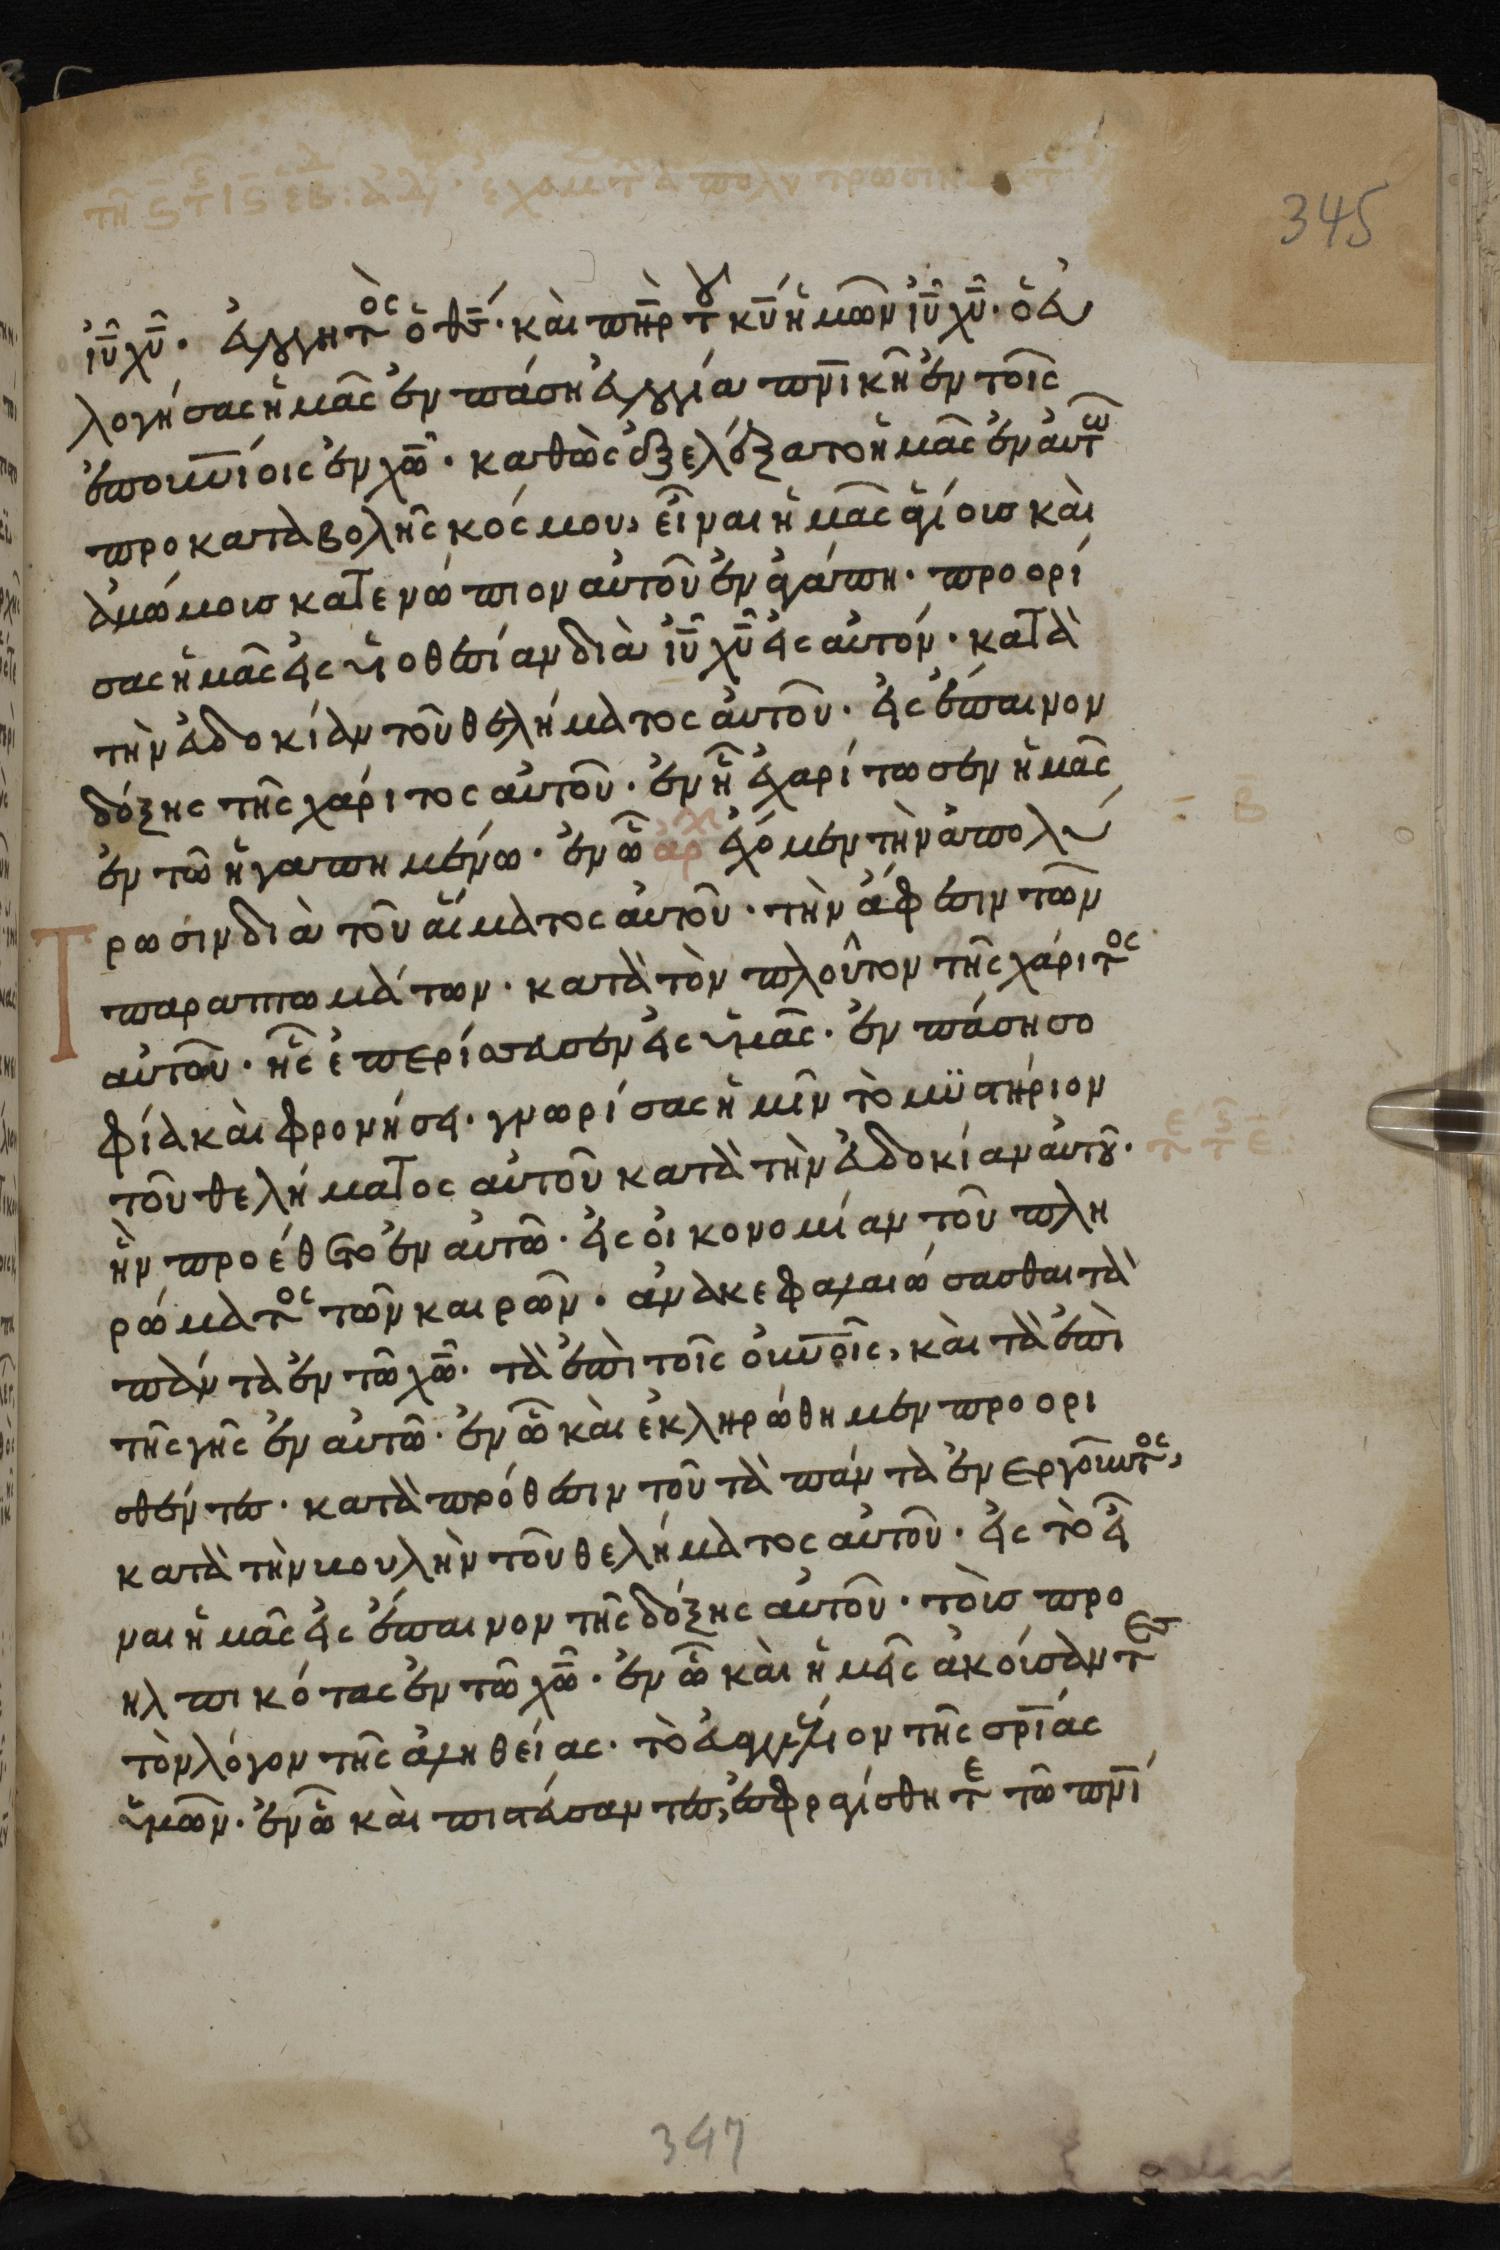 345
ἰῦ χῦ. εὐλογητὸς ὁ θς. καὶ πὴρ τοῦ κῦ ἡμῶν ἰῦ χῦ. ὁ εὐ
λογήσας ἡμᾶς ἐν πάση εὐλογία πνικῆ ἐν τοῖς
ἐπουνίοις ἐν χῶ. καθὼς ἐξελέξατο ἡμᾶς ἐν αὐτῶ
προ καταβολῆς κόσμου, εἶναι ἡμᾶς ἁγίους καὶ
ἀμώμους κατενώπιον αὐτοῦ ἐν ἀγάπη. προορί
σας ἡμᾶς εἰς υἱοθεσίαν διὰ ἰῦ χῦ εἰς αὐτόν. κατὰ
τὴν εὐδοκίαν τοῦ θελήματος αὐτοῦ. εἰς ἔπαινον
δόξης τῆς χάριτος αὐτοῦ. ἐν ἧ ἐχαρίτωσεν ἡμᾶς
ἐν τῶ ἠγαπημένω. ἐν ὧ ἀρχ ἔχομεν τὴν ἀπολύ
τρωσιν διὰ τοῦ αἵματος αὐτοῦ. τὴν ἄφεσιν τῶν
παραπτωμάτων. κατὰ τὸν πλοῦτον τῆς χάριτος
αὐτοῦ. ἧς ἐπερίσσευσεν εἰς ὑμᾶς. ἐν πάση σο
φία καὶ φρονήσει. γνωρίσας ἡμῖν τὸ μϋστήριον
τοῦ θελήματος αὐτοῦ κατὰ τὴν εὐδοκίαν αὐτοῦ.
ἣν προέθετο ἐν αὐτῶ. εἰς οἰκονομίαν τοῦ πλη
ρώματος τῶν καιρῶν. ἀνακεφαλαιώσασθαι τὰ
πάντα ἐν τῶ χῶ. τὰ ἐπὶ τοῖς οὐνοῖς, καὶ τὰ ἐπὶ
τῆς γῆς ἐν αὐτῶ. ἐν ὧ καὶ ἐκληρώθημεν προορι
σθέντες. κατὰ πρόθεσιν τοῦ τὰ πάντα ἐνεργοῦντος,
κατὰ τὴν βουλὴν τοῦ θελήματος αὐτοῦ. εἰς τὸ εἶ
ναι ἡμᾶς εἰς ἔπαινον τῆς δόξης αὐτοῦ. τοὺς προ
ηλπικότας ἐν τῶ χῶ. ἐν ὧ καὶ ἡμεῖς ἀκούσαντες
τὸν λόγον τῆς ἀληθείας. τὸ εὐαγγέλιον τῆς σρίας
ὑμῶν. ἐν ὧ καὶ πιστεύσαντες, ἐσφραγίσθητε τῶ πνι
347